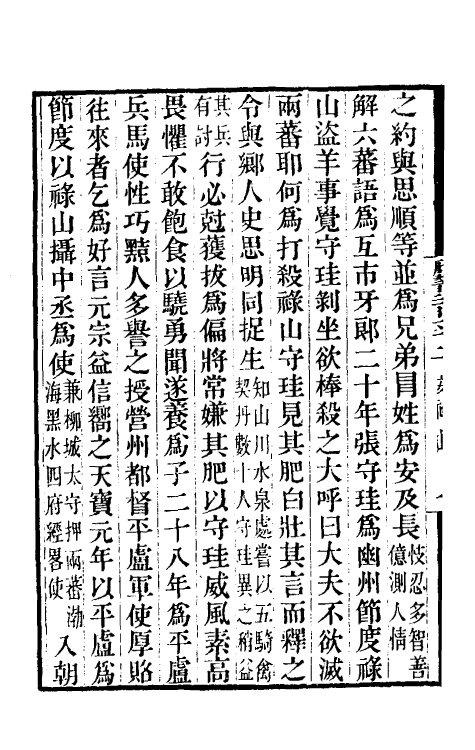 之約與思順等並爲兄弟冒姓爲安及長忮忍多智善億測人情
解六蕃語爲互市牙郎二十年張守珪爲幽州節度祿
山盜羊事覺守珪剥坐欲棒殺之大呼曰大夫不欲滅
兩蕃耶何爲打殺祿山守珪見其肥白壯其言而釋之
令與鄉人史思明同捉生知山川水泉處嘗以五騎禽契丹數十人守珪異之稍益
其兵有討行必尅獲拔爲偏將常嫌其肥以守珪威風素高
畏懼不敢飽食以驍勇聞遂養爲子二十八年爲平盧
兵馬使性巧黠人多譽之授營州都督平盧軍使厚賂
往來者乞爲好言元宗益信嚮之天寶元年以平盧爲
節度以祿山攝中丞爲使兼柳城太守押兩蕃渤海黑水四府經畧使入朝